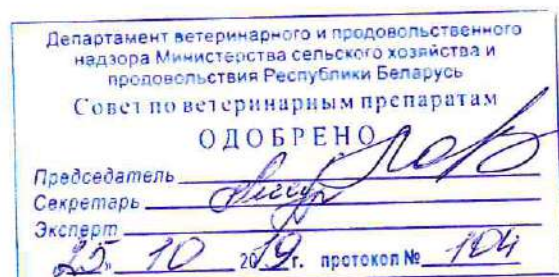 Департамент ветеринарного и продовольственного
надзора Министерства сельского хозяйства и
продовольствия Республики Беларусь
Совет по ветеринарным препаратам
ОДОБРЕНО
Председатель
Секретарь
Эксперт
"25" 10 2019 г. протокол № 104